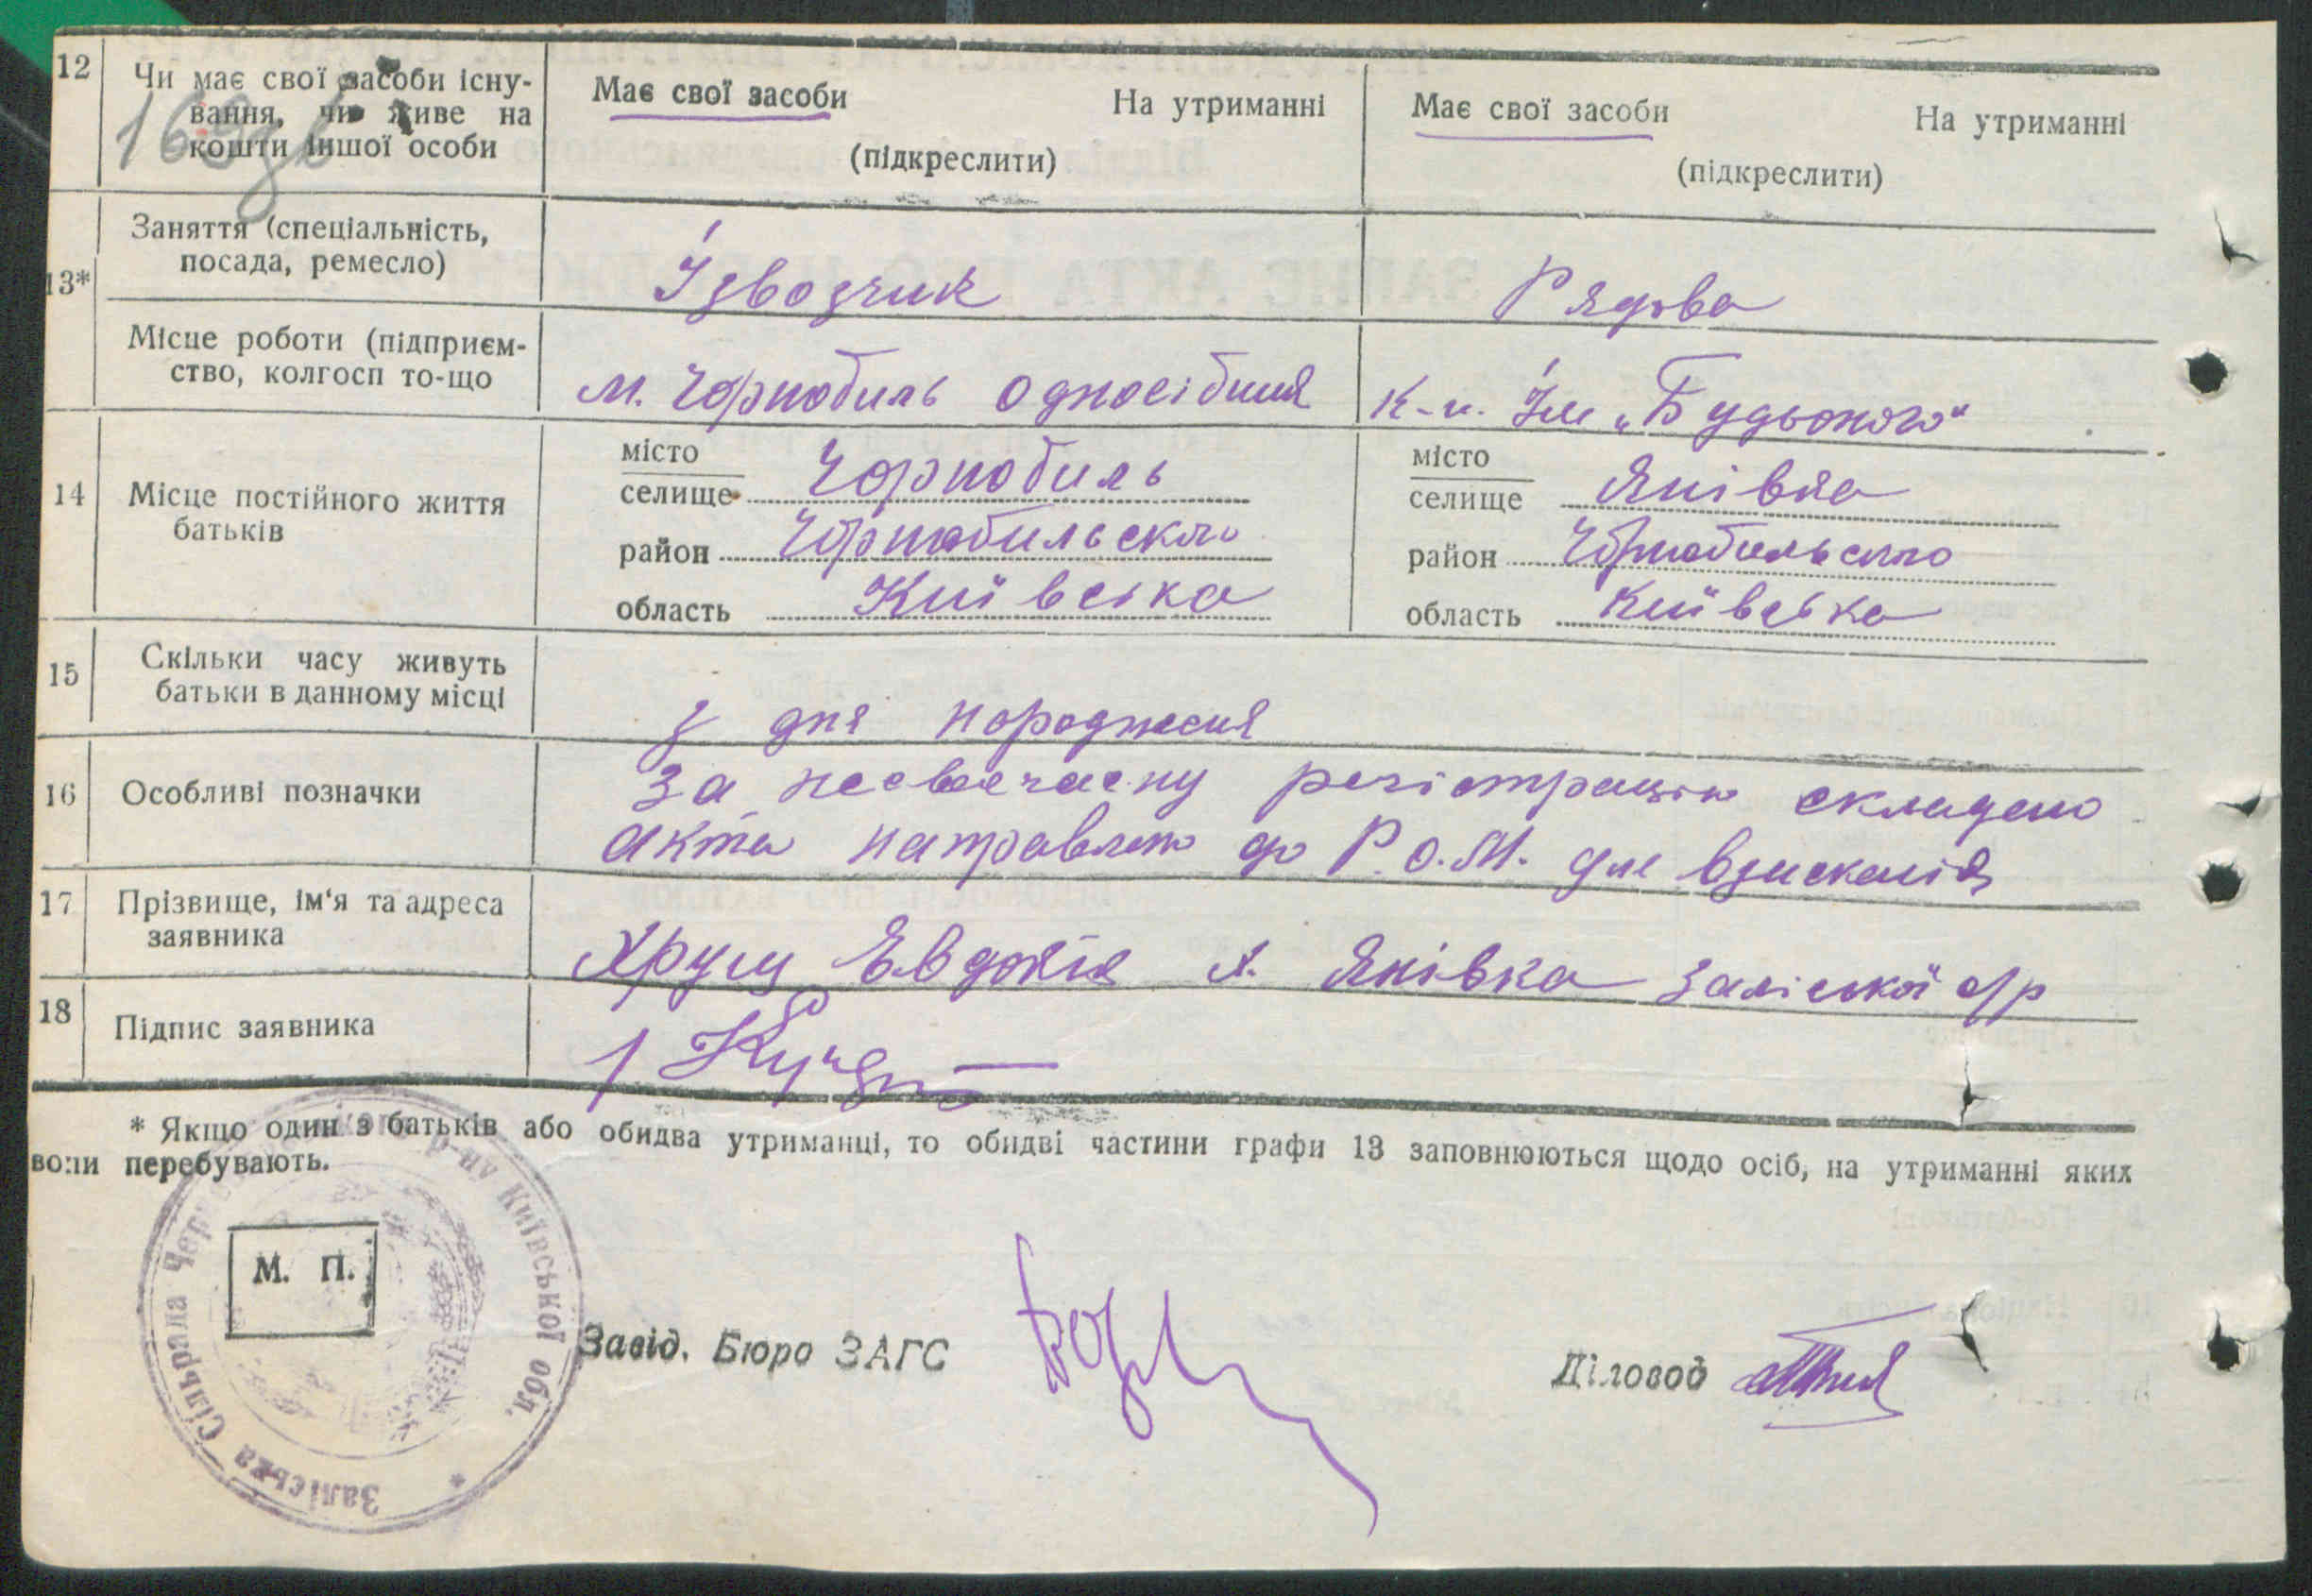 12 Чи має свої засоби існу-
вання, чи живе на
кошти іншої особи
169
Має свої засоби На утриманні
(підкреслити)
Має свої засоби На утриманні
(підкреслити)
13* Заняття (спеціальність,
посада, ремесло)
Ізвозчик
Рядова
Місце роботи (підприєм-
ство, колгосп то-що
м. Чорнобиль односібник
К-п. Ім „Будьоного"
14 Місце постійного життя
батьків
місто
селище Чорнобиль
район Чорнобильского
область Київська
місто
селище Янівка
район Чорнобильского
область Київська
15 Скільки часу живуть
батьки в данному місці
З дня народженя
16 Особливі позначки
За несвоечасну регістрацію складено
акта направлено до Р.О.М. для взисканія
17 Прізвище, ім'я та адреса
заявника
Евдокія х. Янівка Заліської с/р
18 Підпис заявника
* Якщо один з батьків або обидва утриманці, то обидві частини графи 13 заповнюються щодо осіб, на утриманні яких
вони перебувають.
М. П.
Заліська Сільрада р-ну Київської обл.
Завід. Бюро ЗАГС
Діловод